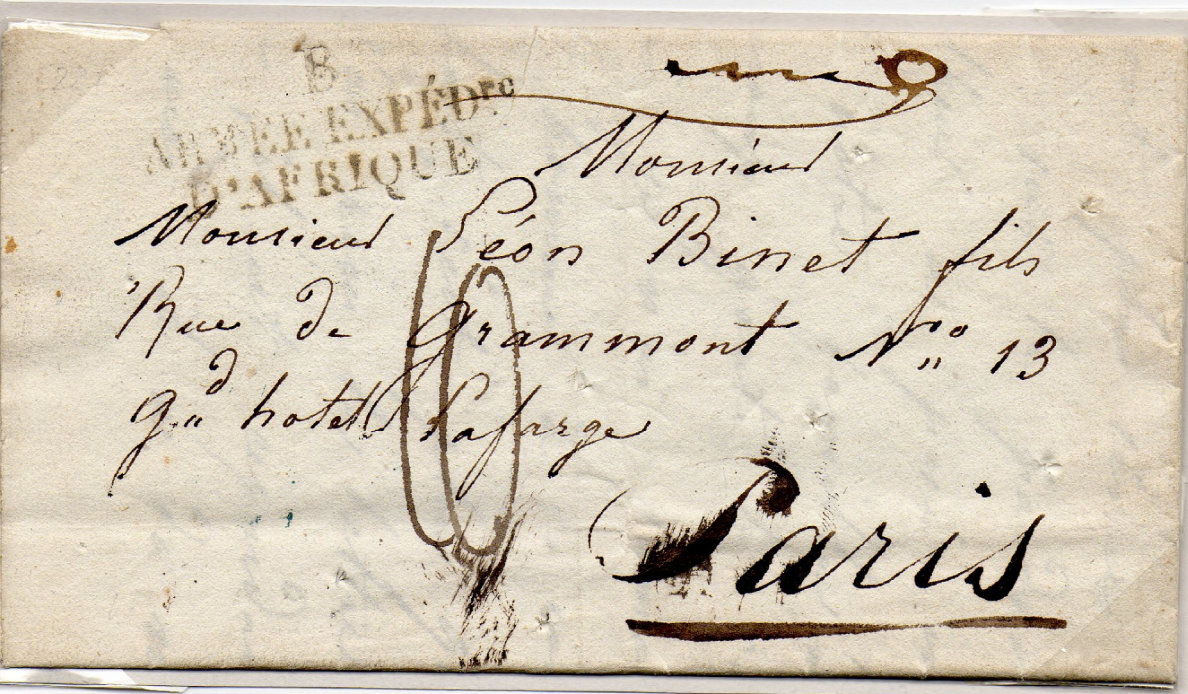 B
ARMÉE EXPÉDre
D'AFRIQUE
Monsieur
Monsieur Léon Binet fils
Rue de Grammont No. 13
gd hotel Lafarge
Paris